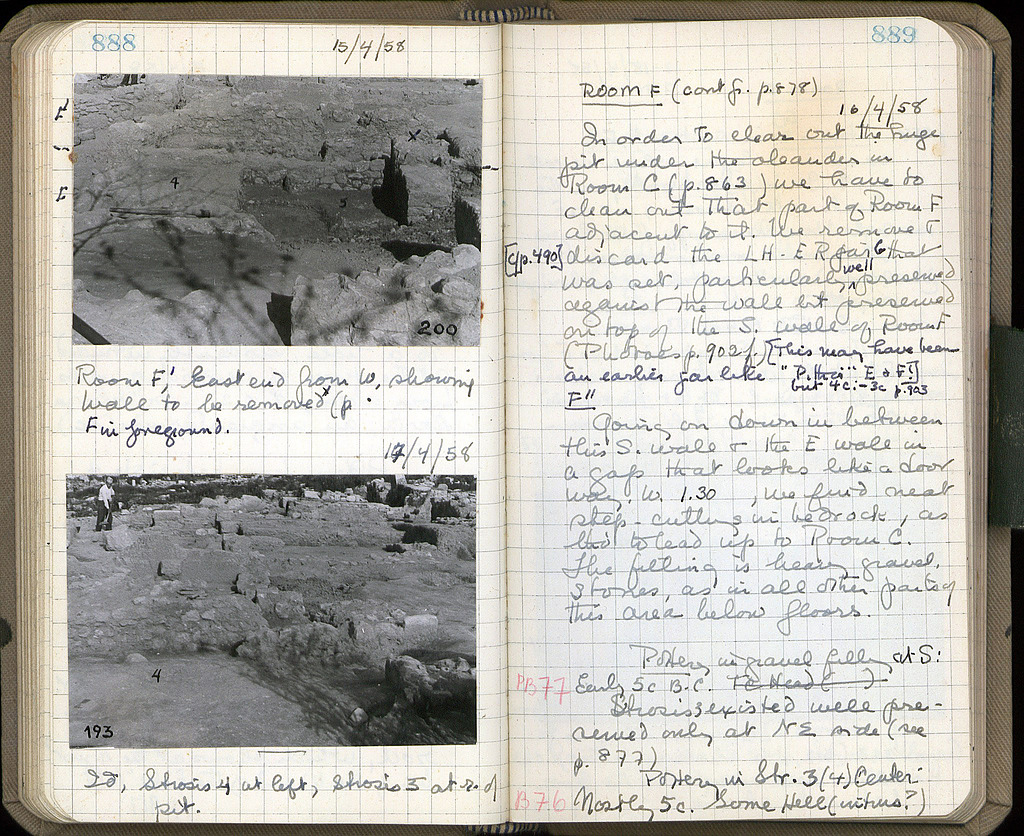 888
15/4/58
F'
F
4
5
X
200
Room F', East end from W, showing
wall to be removed x (p.
F in foreground.
17/4/58
4
193
Id, Strosis 4 at left, Strosis 5 at r. of
pit.
889
ROOM F (cont. fr. p. 878)
16/4/58
In order to clear out the huge
pit under the oleander in
Room C (p. 863) we have to
clean out that part of Room F
adjacent to it. We remove &
[cf p. 490] discard the LH-ER that
was set, particularly well preserved
against the wall bit preserved
on top of the S. wall of Room F
(Photoes p. 902 f.) [This may have been
an earlier jar like "Pithoi" E & F!]
but 4c.-3c p. 903
F"
Going on down in between
this S. wall & the E wall in
a gap that looks like a door
way, W. 1.30 , we find neat
step-cutting in bedrock, as
tho' to lead up to Room C.
The filling is heavy gravel,
stones, as in all other parts of
this area below floors.
Pottery in gravel filling at S:
PB77 Early 5c B.C. TC Head ( )
Strosis 3 existed well pre-
served only at NE side (see
p. 877)
Pottery in Str. 3(4) Center:
B76 Mostly 5c. Some Hell (intrus.?)